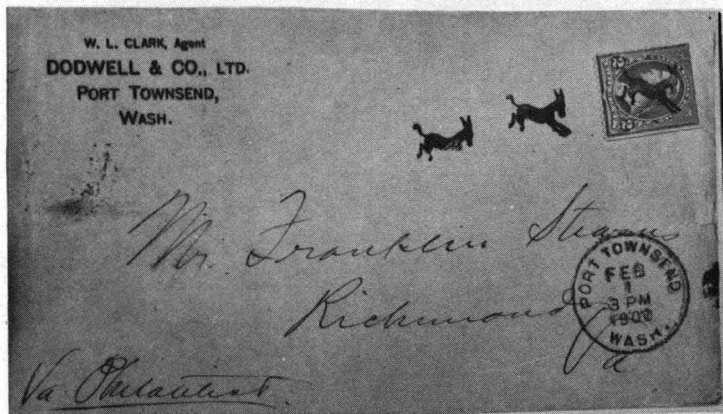 W. L. CLARK, Agent
DODWELL & CO., LTD.
PORT TOWNSEND,
WASH.
Mr. Franklin Stearns
Richmond
Va
PORT TOWNSEND
FEB
1
3 PM
1900
WASH.
Va. Philatelist.